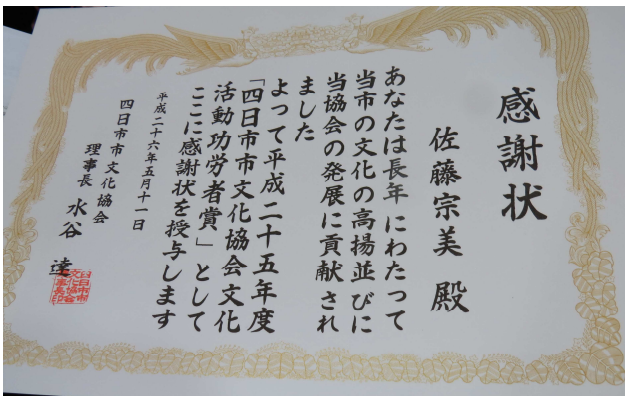 感謝状
佐藤宗美 殿
あなたは長年にわたって
当市の文化の高揚並びに
当協会の発展に貢献され
ました
よって平成二十五年度
「四日市市文化協会文化
活動功労者賞」として
ここに感謝状を授与します
平成二十六年五月十一日
四日市市文化協会
理事長 水谷 達
四日市市
文化協会
理事長印